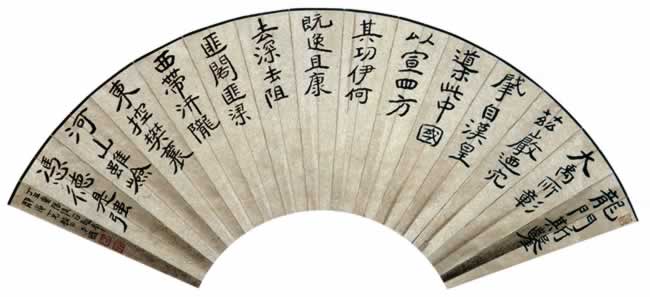 龍門斯鑿
大禹所彰
茲巖迺穴
肇自漢皇
導此中國
以宣四方
其功伊何
既逸且康
去深去阻
匪閣匪梁
西帶汧隴
東控樊襄
河山雖嶮
馮德是強